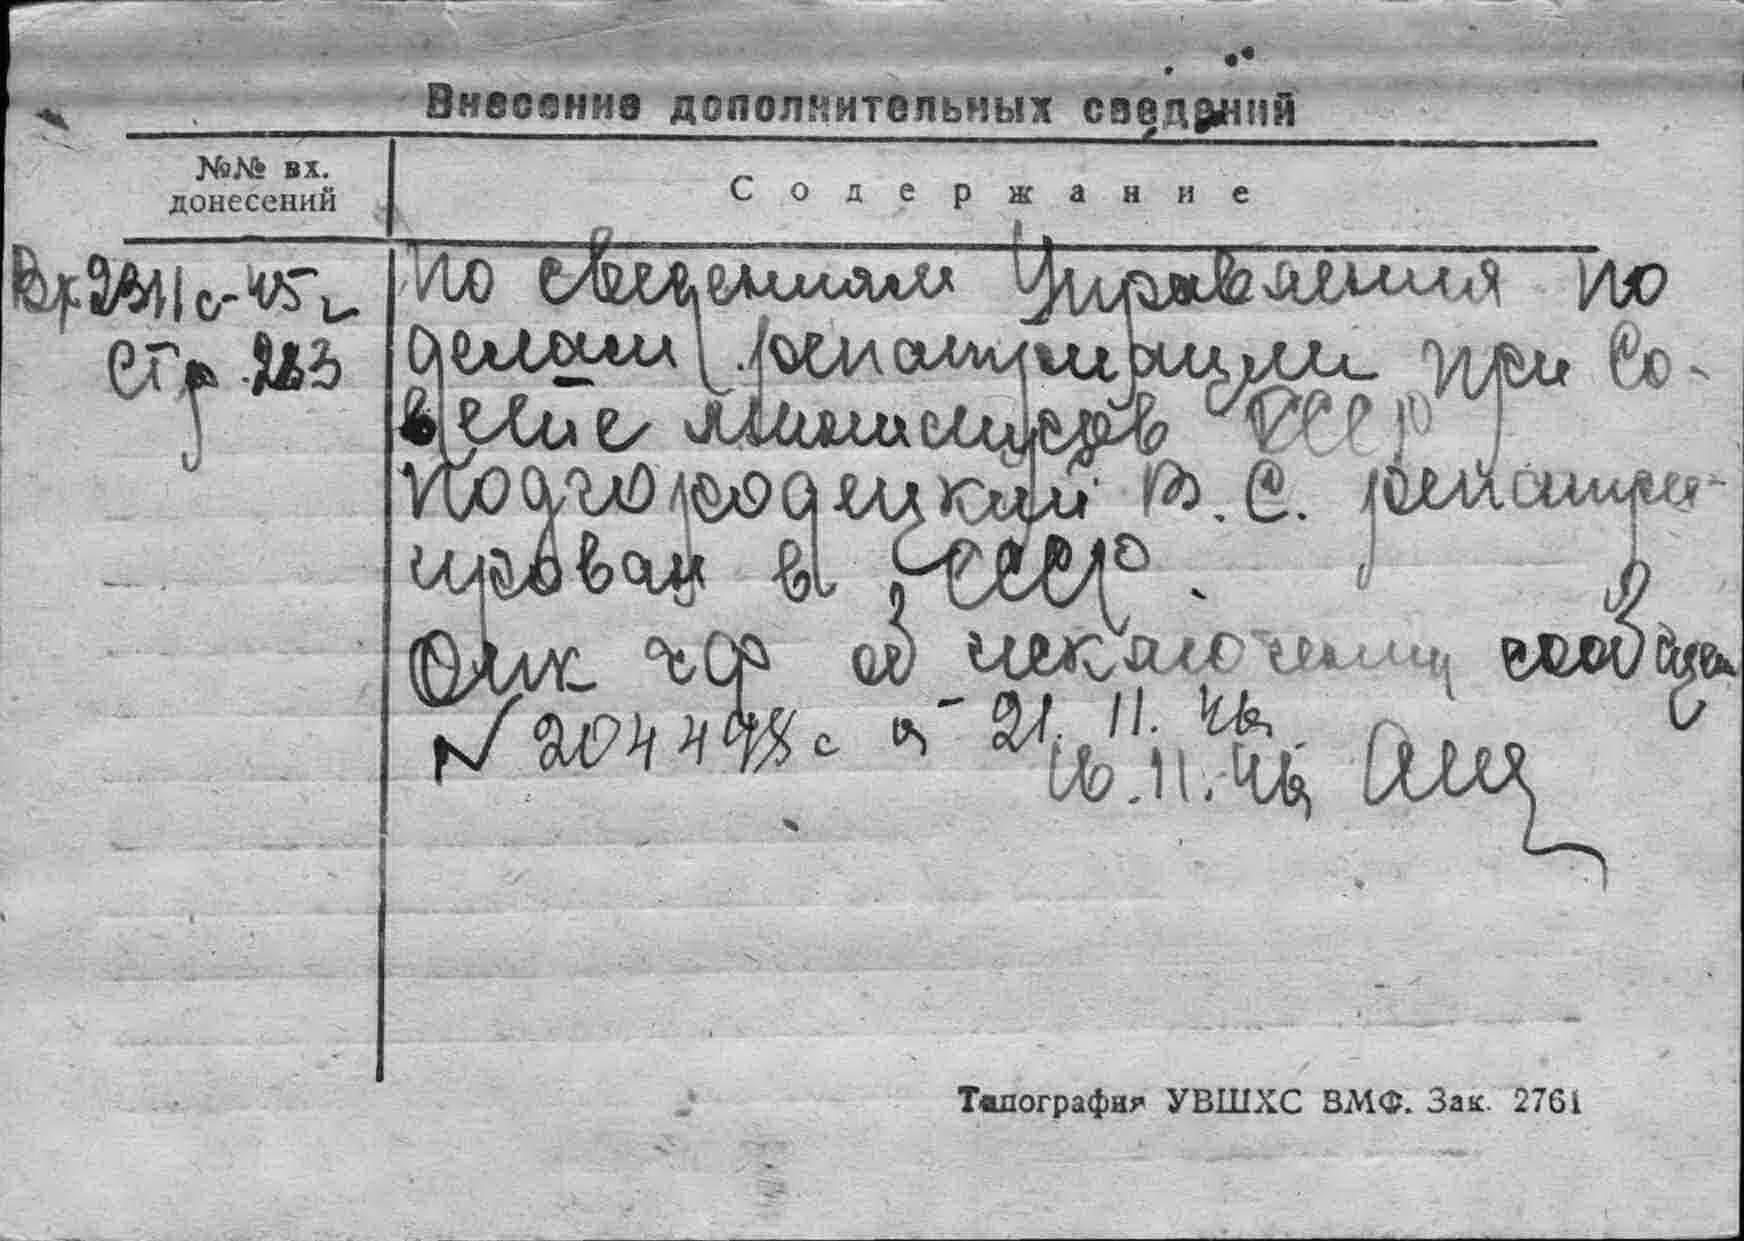 Внесение дополнительных сведений
№№ вх.
донесений
Содержание
Вх 2311с-45г
Стр. 283
По сведениям Управления по
делам репатриации при Со-
вете министров СССР
Подгородецкий В. С. репатри-
ирован в СССР.
ОМК ЧФ об исключении сообщен
N 204498с от 21. 11. 46г.
16. 11. 46г
Типография УВШХС ВМФ. Зак. 2761